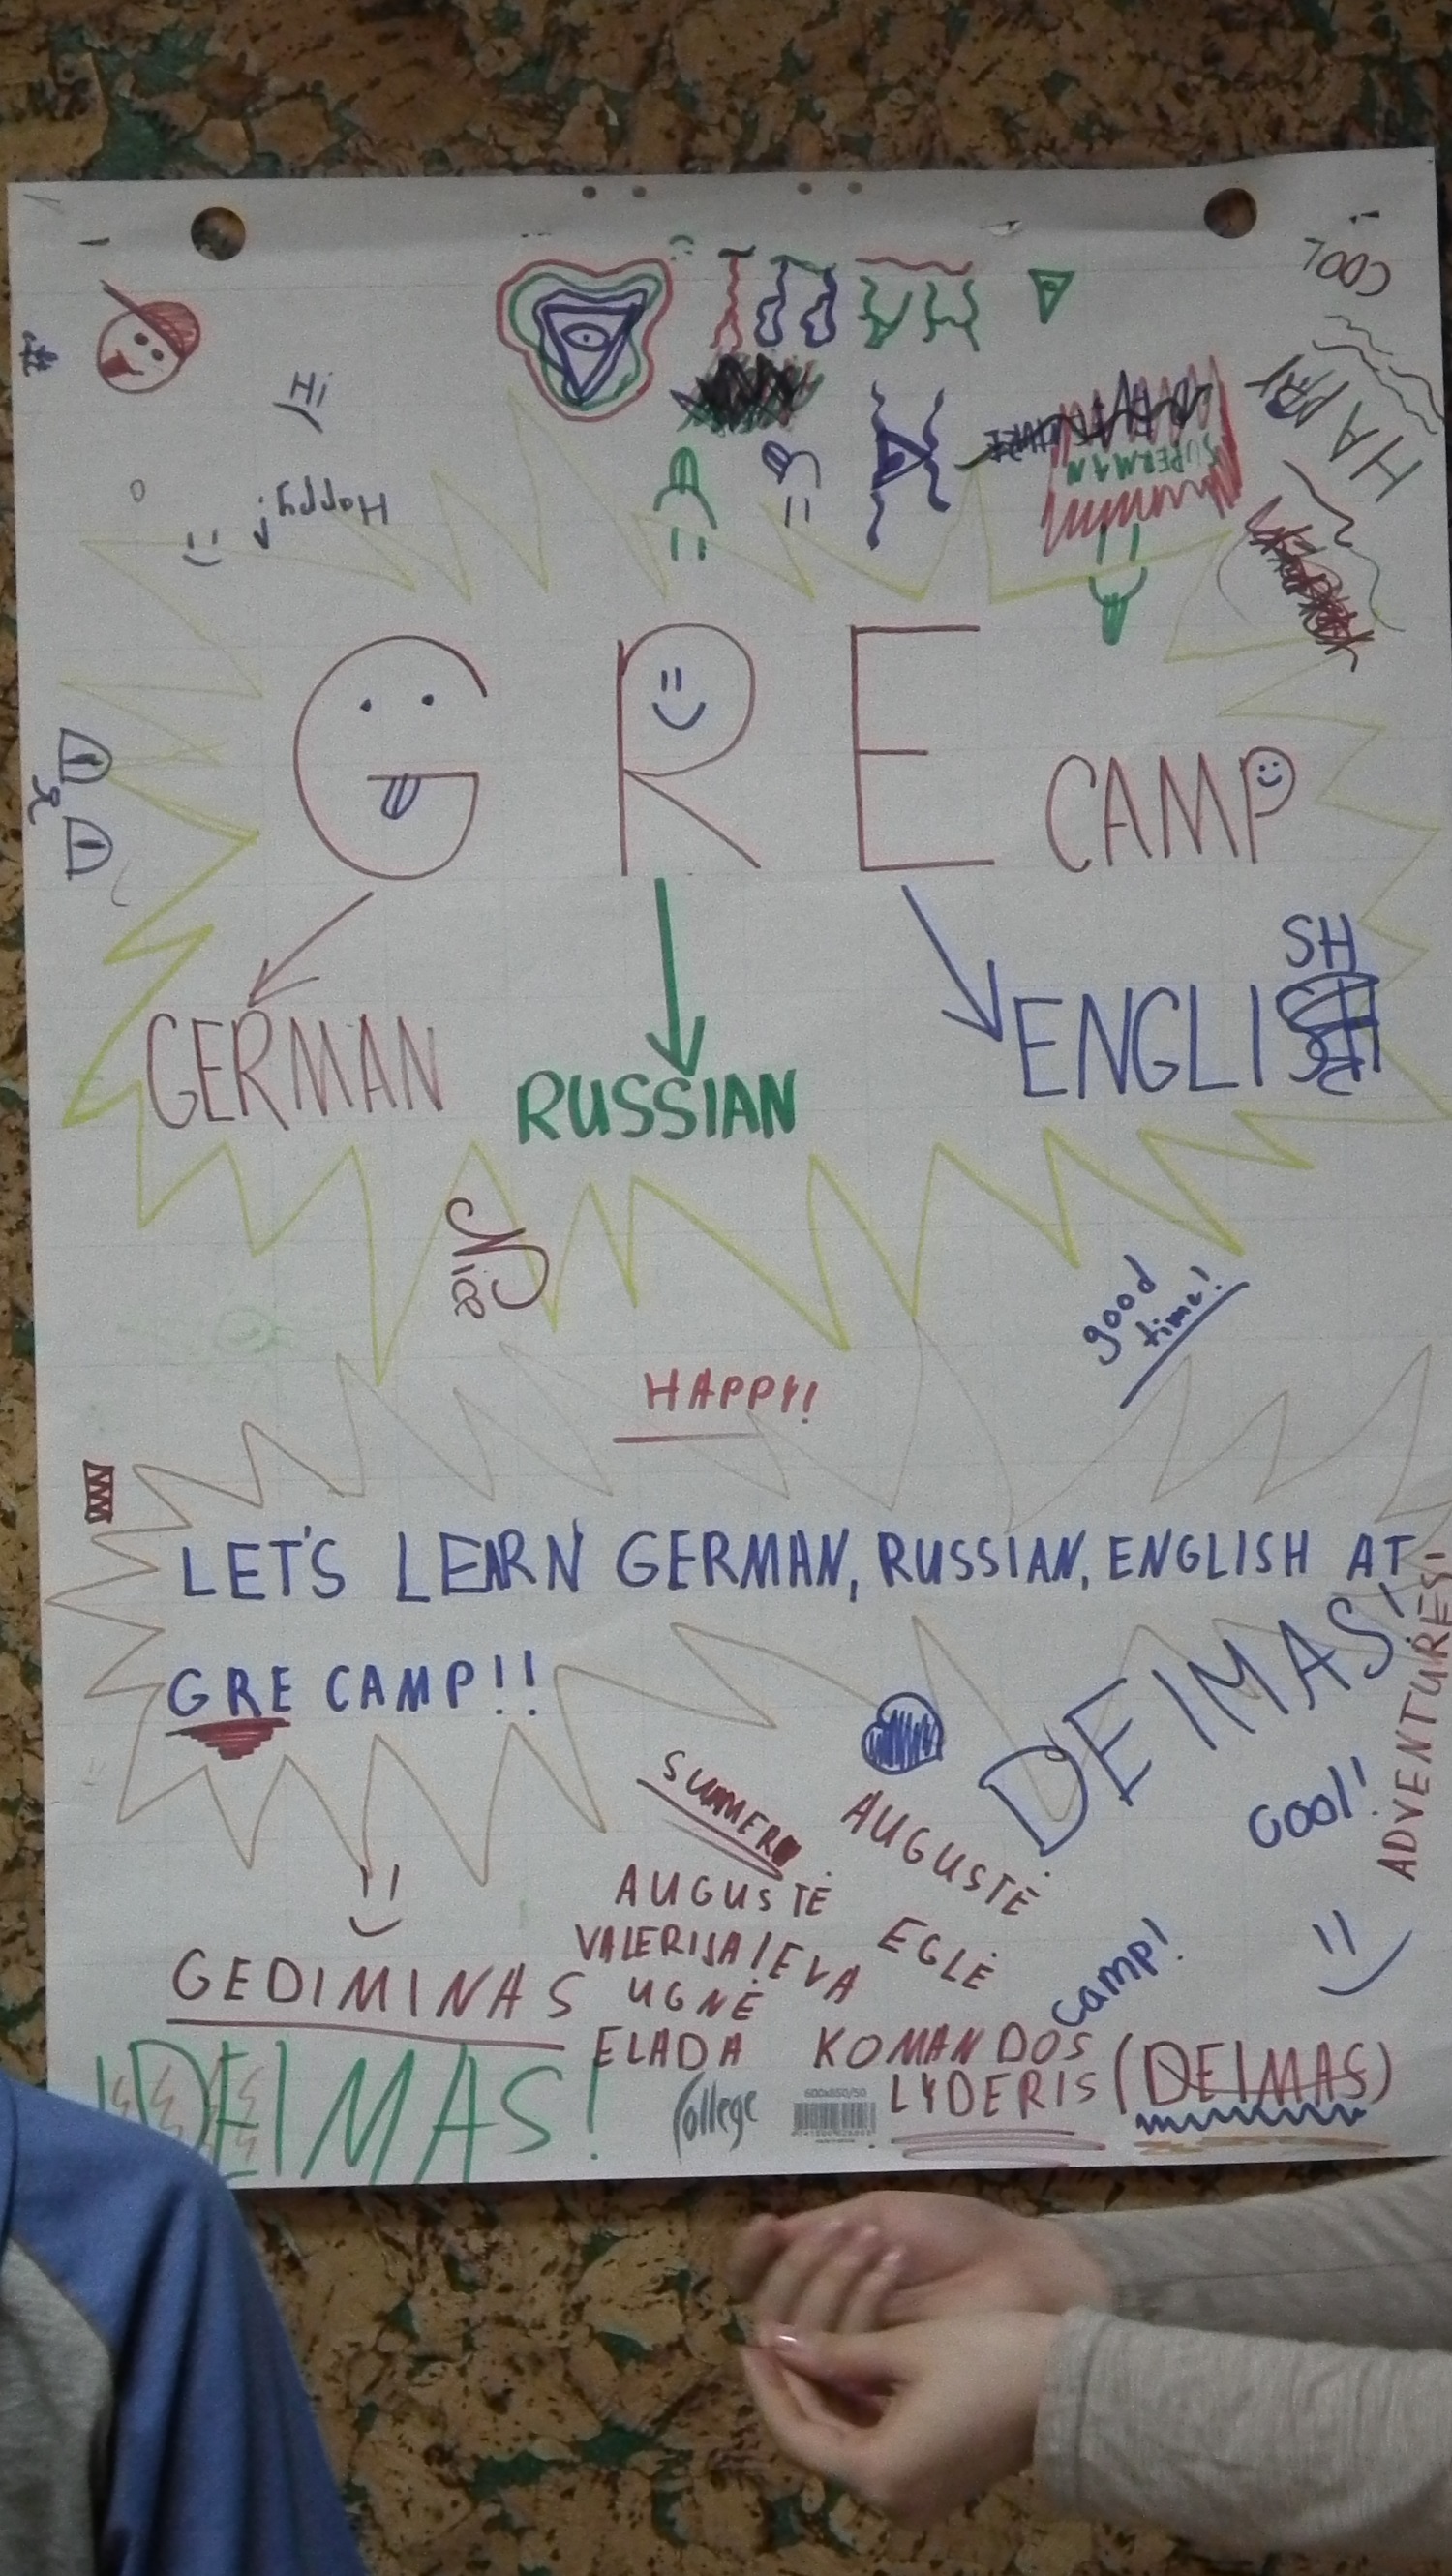 COOL
HAPPY
Hi
SUPERMAN
Happy!
GRE CAMP
SH
GERMAN
RUSSIAN
ENGLI
Nice
good
time!
HAPPY!
LET'S LEARN GERMAN, RUSSIAN, ENGLISH AT
GRE CAMP!!
DEIMAS!
ADVENTURES!
cool!
SUMMER
AUGUSTĖ
AUGUSTĖ
VALERIJA IEVA
EGLĖ
camp!
GEDIMINAS
UGNĖ
ELADA
KOMANDOS
LYDERIS (DEIMAS)
DEIMAS!
College
600x850/50